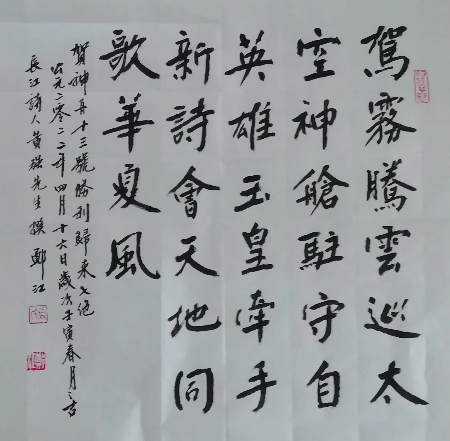 駕霧騰雲巡太
空神艙駐守自
英雄玉皇牽手
新詩會天地同
歌華夏風
賀神舟十三號勝利歸來七絕
公元二零二二年四月十六日歲次壬寅春月之吉
長江詩人黃強先生撰 鄭江